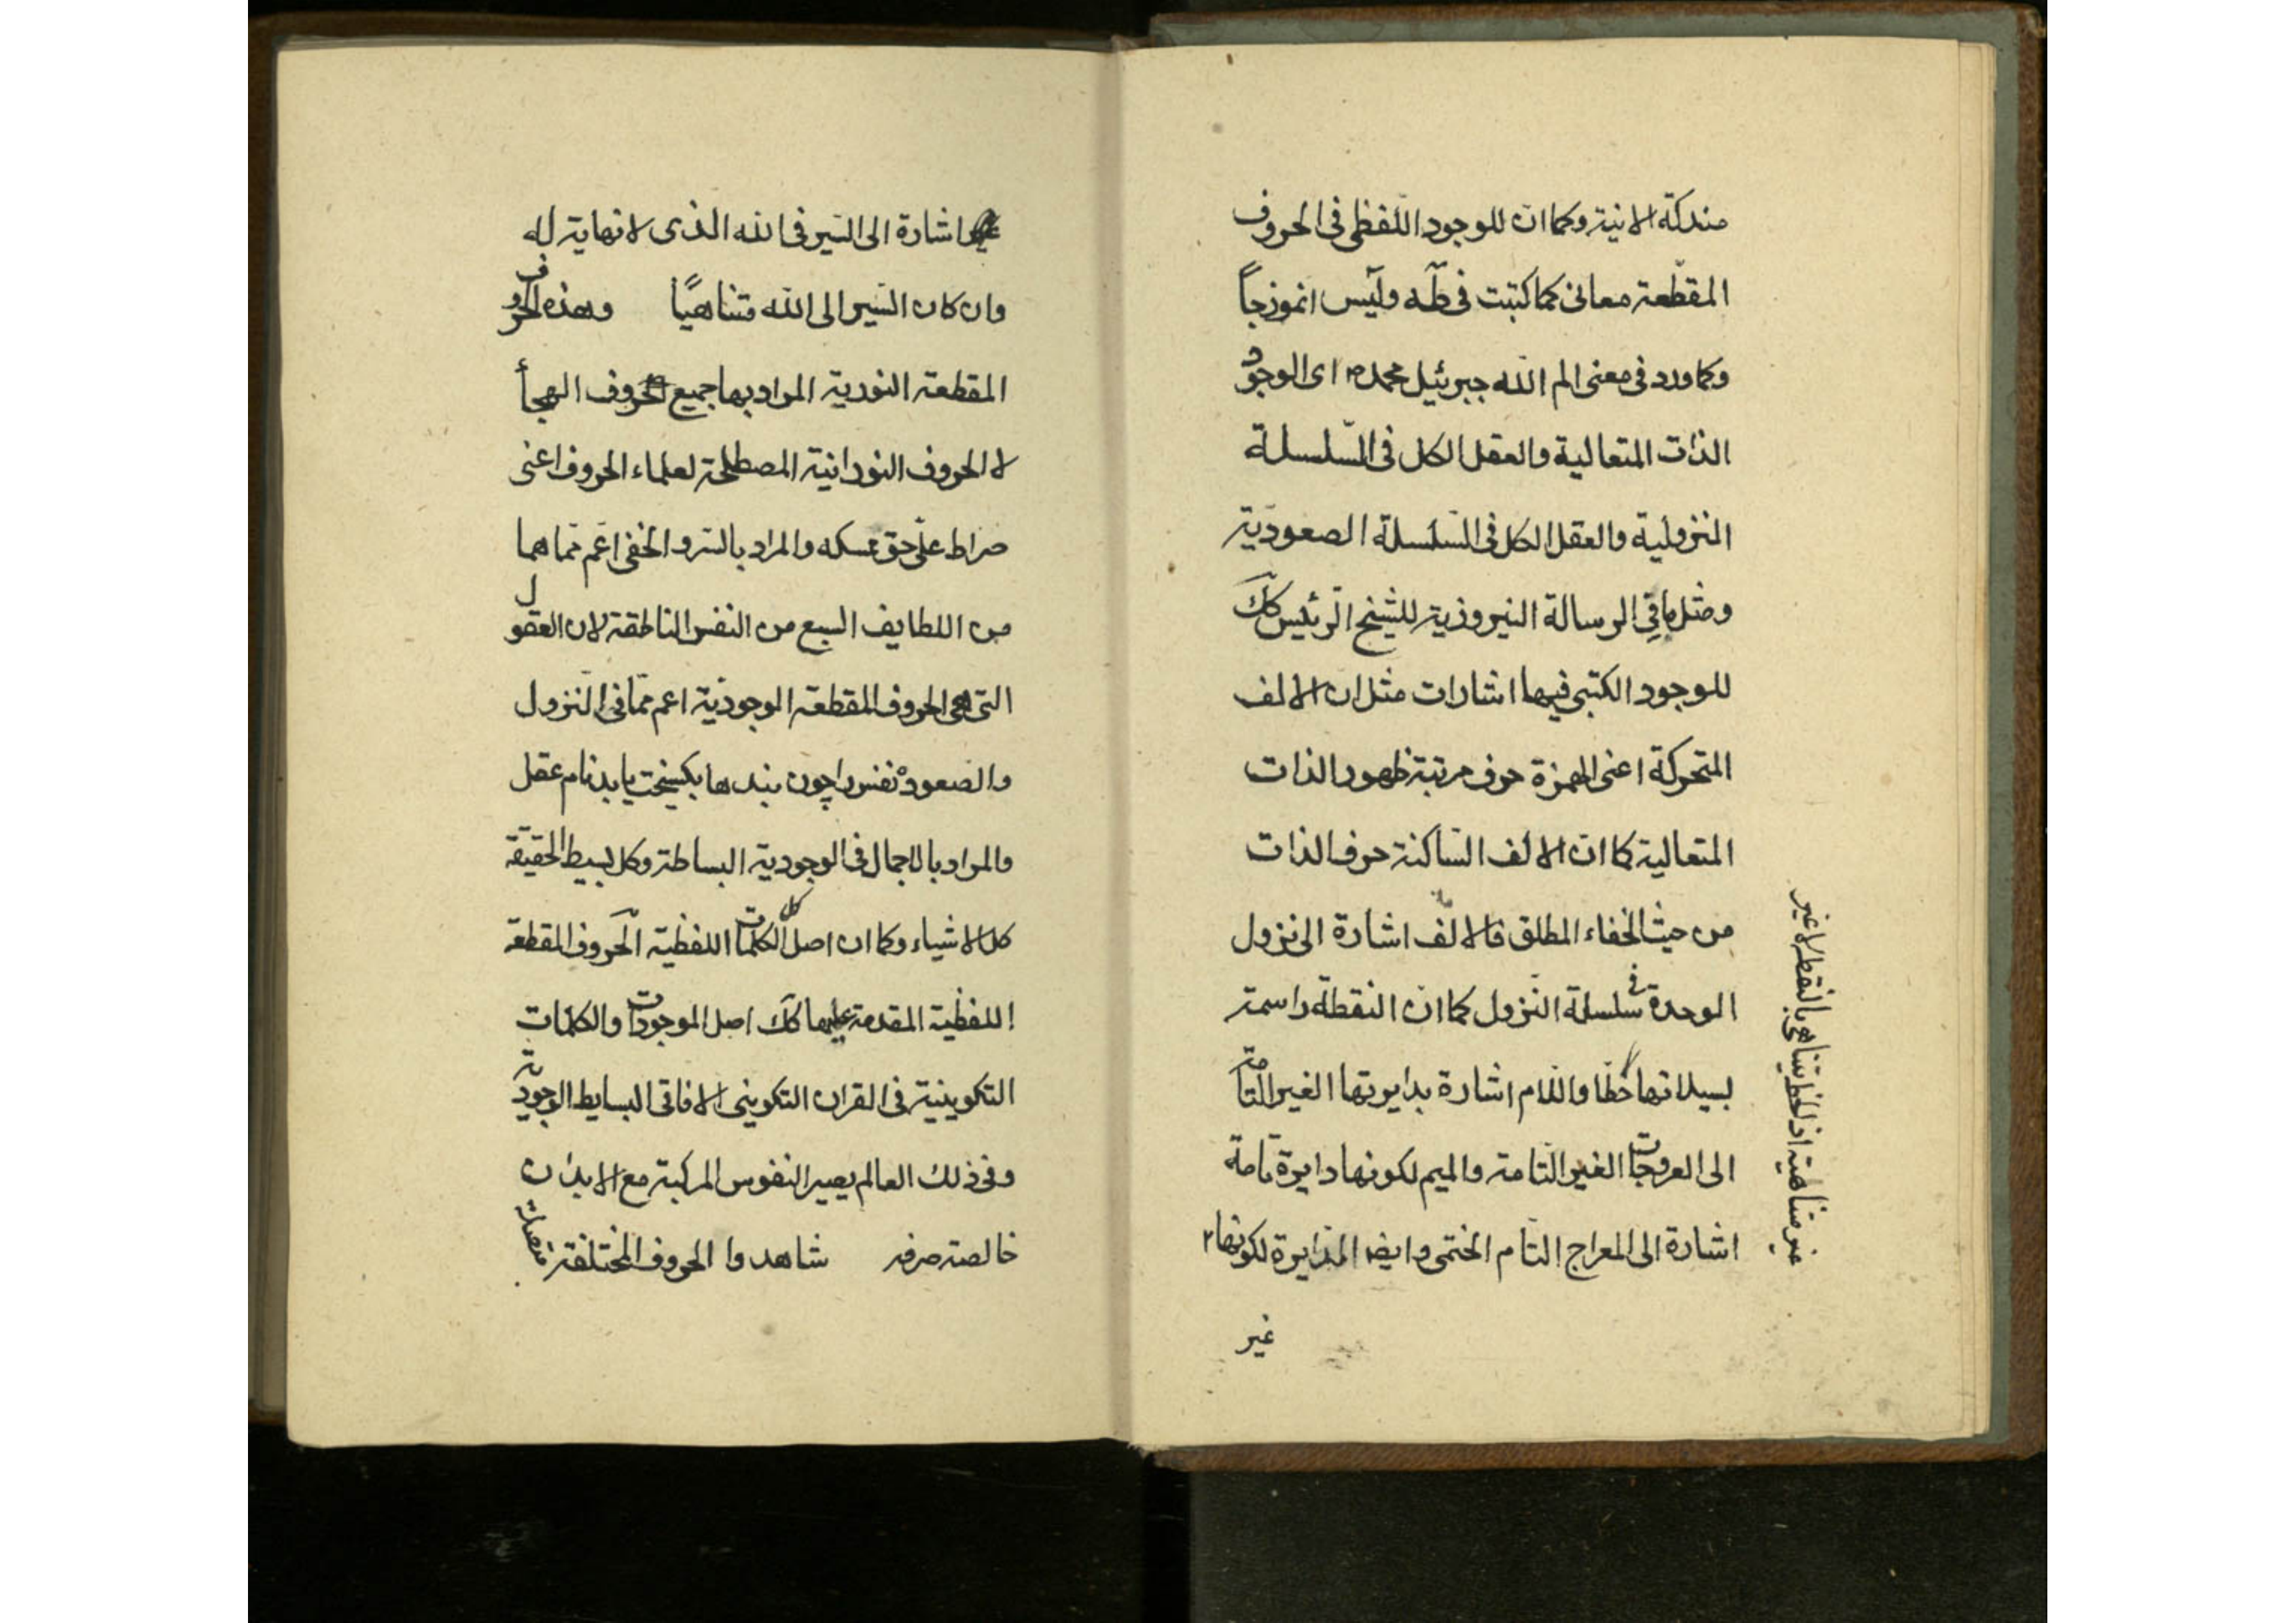 مندكة الانية وكما ان للوجود اللفظى فى الحروف
المقطعة معانى كما كتبت فى طه ويس انموزجاً
وكما ورد فى معنى الم الله جبرئيل محمد ص اى الوجود
الذات المتعالية والعقل الكل فى السلسلة
النزولية والعقل الكل فى السلسلة الصعودية
ومثل ما فى الرسالة النيروزية للشيخ الرئيس كك
للوجود الكتبى فيها اشارات مثل ان الالف
المتحركة اعنى الهمزة حرف مرتبة ظهور الذات
المتعالية كما ان الالف الساكنة حرف الذات
من حيث الخفاء المطلق فالالف اشارة الى نزول
الوحدة فى سلسلة النزول كما ان النقطة راسمة
بسيلانها خطا واللام اشارة بدايرتها الغير التامة
الى العروجات الغير التامة والميم لكونها دايرة تامة
اشارة الى المعراج التام الختمى وايضا الدايرة لكونها
غير
غير متناهية اذ الخط يتناهى بالنقطة لا غير
اشارة الى السير فى الله الذى لا نهاية له
وان كان السير الى الله متناهيًا وهذه الحروف
المقطعة النورية المراد بها جميع حروف الهجأ
لا الحروف النورانية المصطلحة لعلماء الحروف اعنى
صراط على حق نمسكه والمراد بالسر والخفى اعم مما هما
من اللطايف السبع من النفس الناطقة لان العقول
التى هى الحروف المقطعة الوجودية اعم مما فى النزول
والصعود نفس را چون بندها بكسيخت يابد نام عقل
والمراد بالاجمال فى الوجودية البساطة وكل بسيط الحقيقة
كل الاشياء وكما ان اصل كل الكلمات اللفظية الحروف المقطعة
اللفظية المقدمة عليها كك اصل الموجودات والكلمات
التكوينية فى القران التكوينى الافاقى البسايط الوجودية
وفى ذلك العالم يصير النفوس المركبة مع الابدان
خالصة صرفه شاهدوا الحروف المختلفة منفصلة